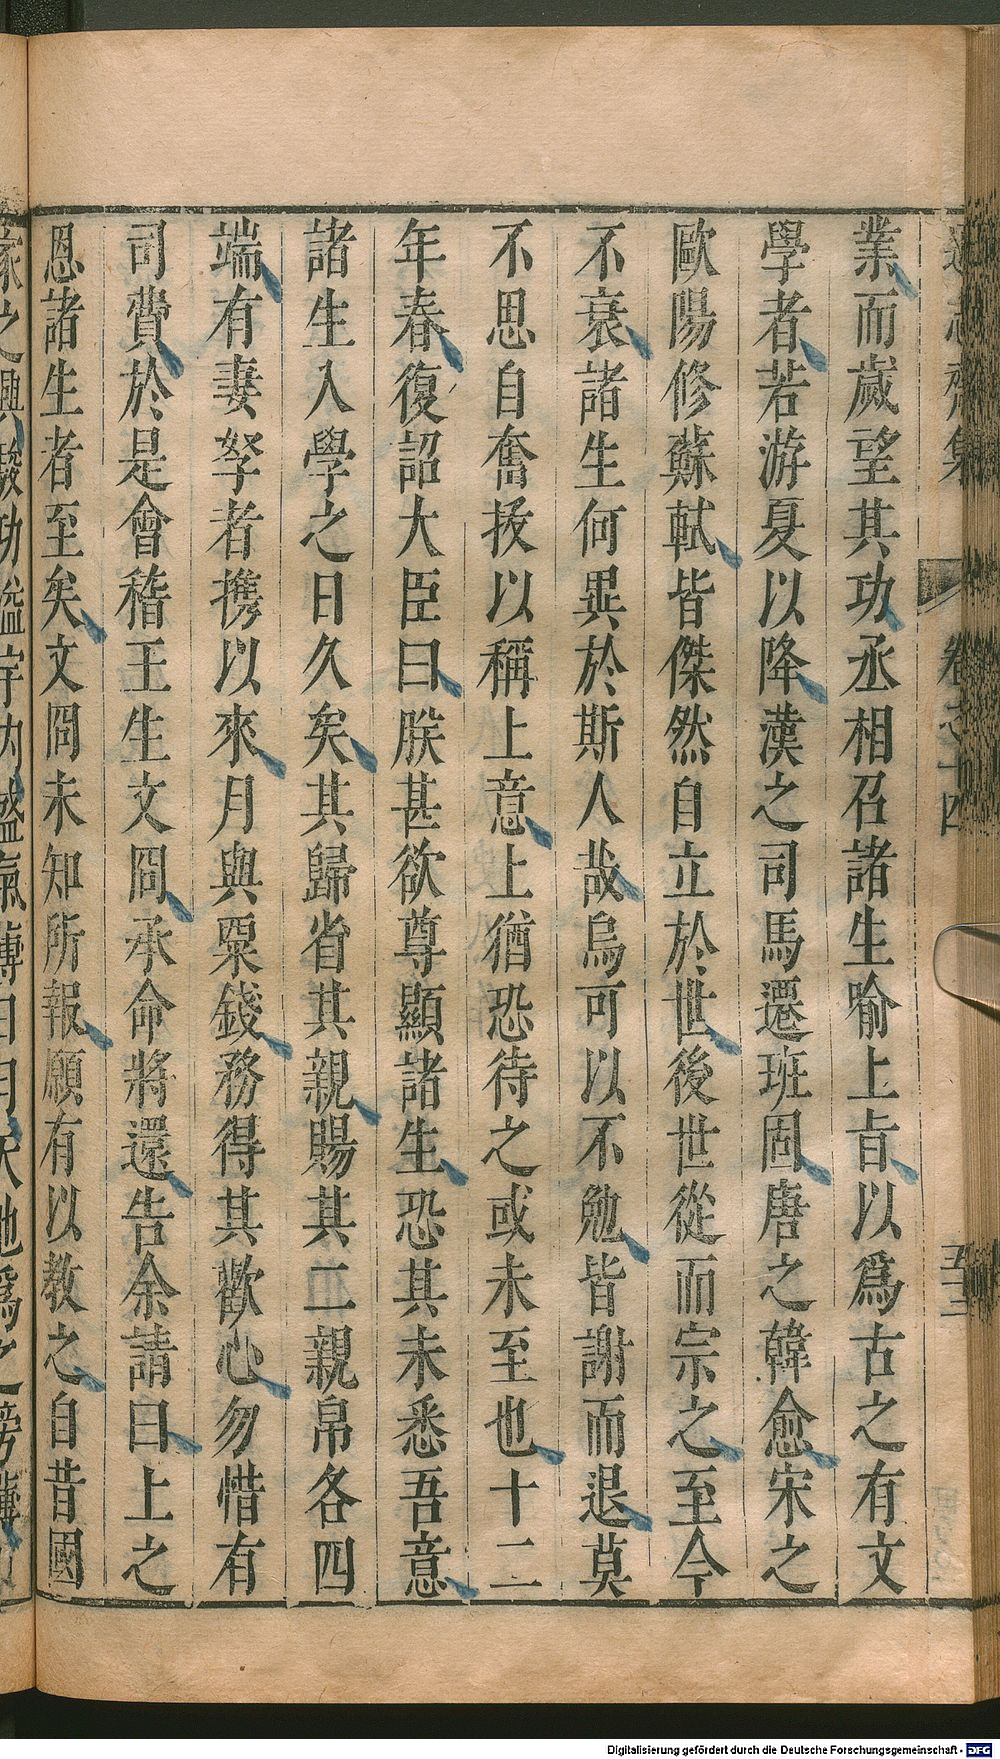 卷之十四
業而歲望其功丞相召諸生喻上㫖以爲古之有文
學者若游夏以降漢之司馬遷班固唐之韓愈宋之
歐陽修蘇軾皆傑然自立於世後世從而宗之至今
不衰諸生何異於斯人哉烏可以不勉皆謝而退莫
不思自奮拔以稱上意上猶恐待之或未至也十二
年春復詔大臣曰朕甚欲尊顯諸生恐其未悉吾意
諸生入學之日久矣其歸省其親賜其二親帛各四
端有妻孥者携以來月與粟錢務得其歡心勿惜有
司費於是會稽王生文冏承命將還告余請曰上之
恩諸生者至矣文冏未知所報願有以教之自昔國
Digitalisierung gefördert durch die Deutsche Forschungsgemeinschaft - DFG